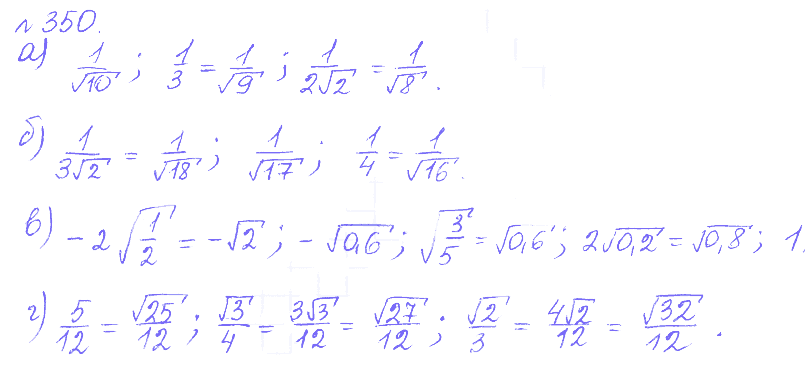 № 350.
а) 1/√10 ; 1/3 = 1/√9 ; 1/2√2 = 1/√8 .
б) 1/3√2 = 1/√18 ; 1/√17 ; 1/4 = 1/√16 .
в) -2√(1/2) = -√2 ; -√0,6 ; √(3/5) = √0,6 ; 2√0,2 = √0,8 ; 1.
г) 5/12 = √25/12 ; √3/4 = 3√3/12 = √27/12 ; √2/3 = 4√2/12 = √32/12 .